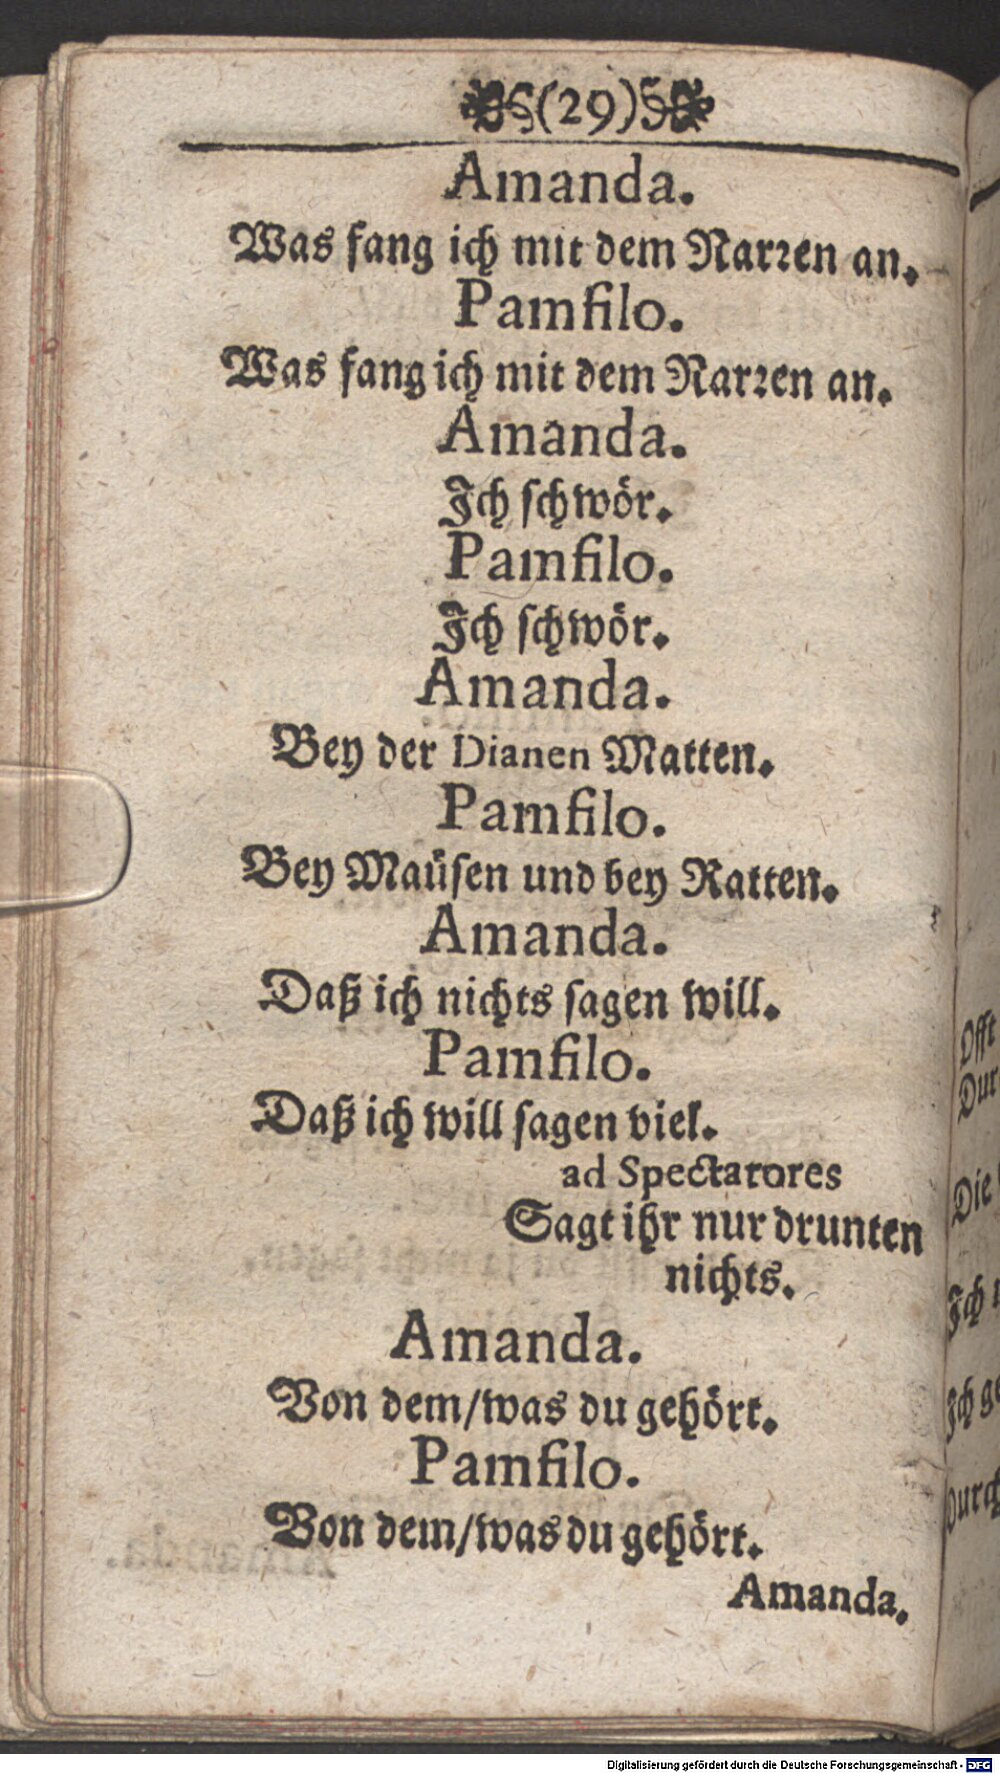 (29)
Amanda.
Was fang ich mit dem Narren an.
Pamfilo.
Was fang ich mit dem Narren an.
Amanda.
Ich schwör.
Pamfilo.
Ich schwör.
Amanda.
Bey der Dianen Matten.
Pamfilo.
Bey Maüsen und bey Ratten.
Amanda.
Daß ich nichts sagen will.
Pamfilo.
Daß ich will sagen viel.
ad Spectatores
Sagt ihr nur drunten
nichts.
Amanda.
Von dem/was du gehört.
Pamfilo.
Von dem/was du gehört.
Amanda.
Offt
Die
Ich
Digitalisierung gefördert durch die Deutsche Forschungsgemeinschaft - DFG